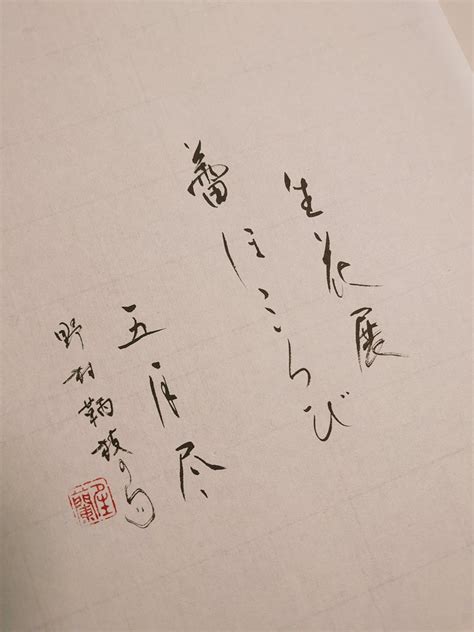 生花展
蕾ほころび
五月尽
野村鞆枝の句